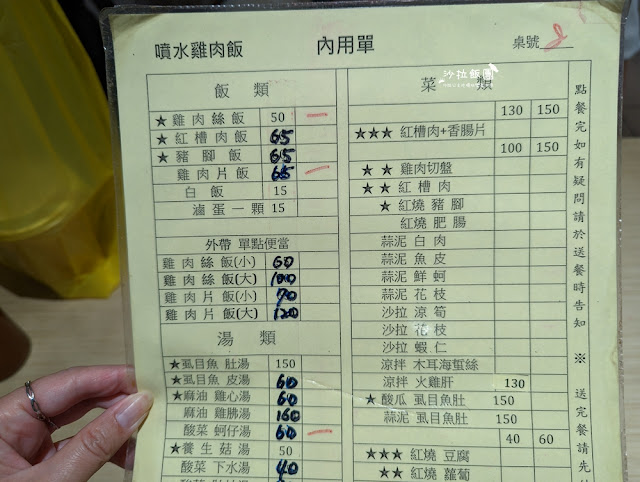 噴水雞肉飯 內用單 桌號 2
沙拉飯團
飯 類
★ 雞肉絲飯 50
★ 紅槽肉飯 65
★ 豬腳飯 65
雞肉片飯 65
白飯 15
滷蛋一顆 15
外帶 單點便當
雞肉絲飯(小) 60
雞肉絲飯(大) 100
雞肉片飯(小) 70
雞肉片飯(大) 120
湯 類
★虱目魚 肚湯 150
★虱目魚 皮湯 60
★麻油 雞心湯 60
麻油 雞胇湯 160
酸菜 蚵仔湯 60
★養生菇湯 50
酸菜 下水湯 40
菜 類
130 150
★★★ 紅槽肉+香腸片
100 150
★ ★ 雞肉切盤
★★ 紅 槽 肉
★ 紅燒 豬 腳
紅燒 肥 腸
蒜泥 白 肉
蒜泥 魚 皮
蒜泥 鮮 蚵
蒜泥 花 枝
沙拉 涼 筍
沙拉 花 枝
沙拉 蝦 仁
涼拌 木耳海蜇絲
涼拌 火雞肝 130
★ 酸瓜 虱目魚肚 150
蒜泥 虱目魚肚 150
40 60
★★★ 紅燒 豆腐
★★ 紅燒 蘿蔔
點餐完如有疑問請於送餐時告知 ※ 送完餐請先